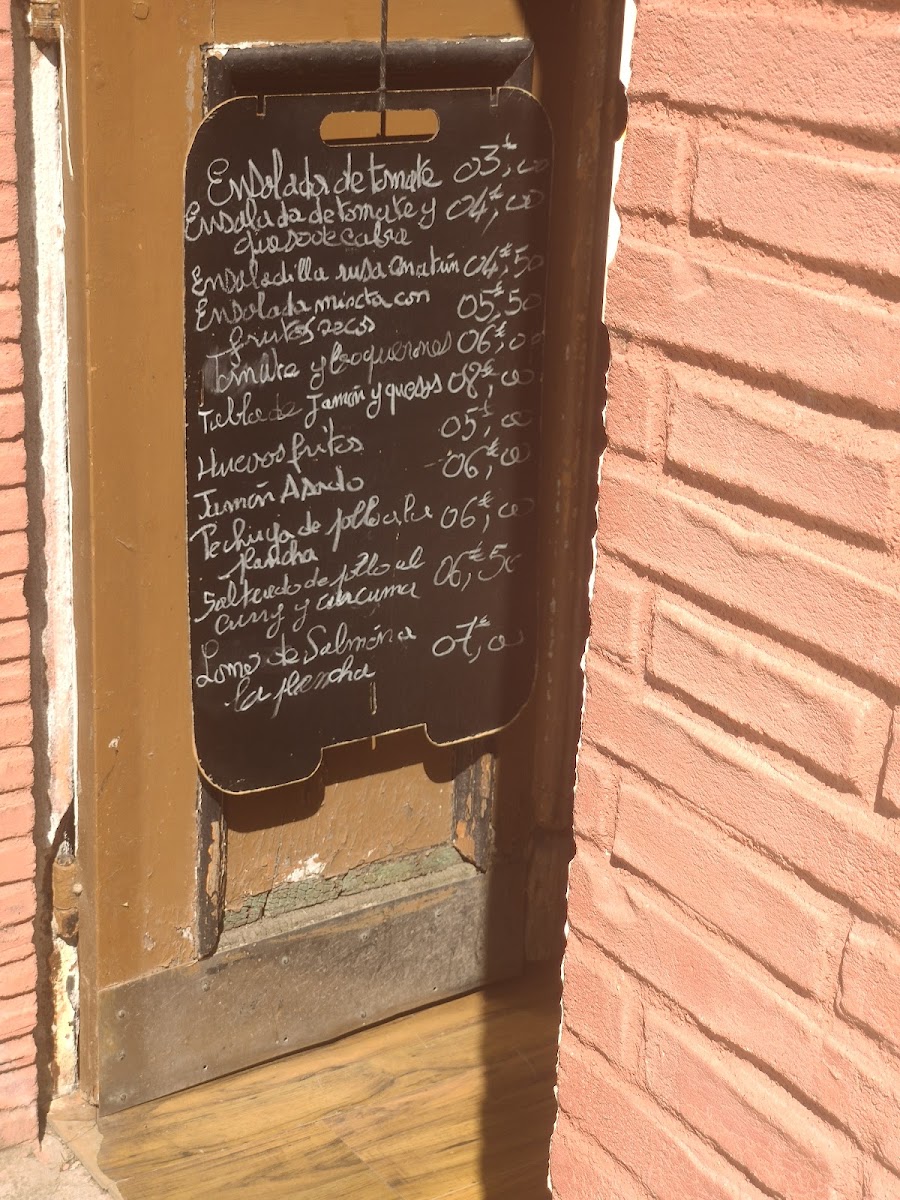 Ensolada de tomate 03€,00
Ensalada de tomate y 04€,00
queso de cabra
Ensaladilla rusa con atún 04€,50
Ensolada mixta con 05€,50
frutos secos
Tomate y boquerones 06€,00
Tabla de Jamón y quesos 08€,00
Huevos fritos 05€,00
Jamón Asado 06€,00
Pechuga de pollo a la 06€,00
plancha
Salteado de pollo al 06€,50
curry y curcuma
Lomo de Salmón a 07€,00
la plancha